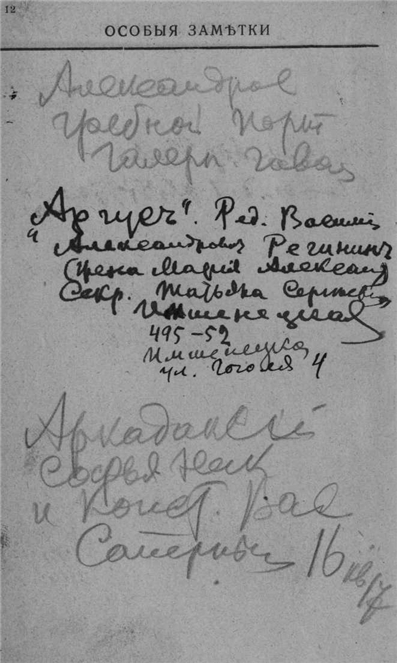 12
ОСОБЫЯ ЗАМѢТКИ
Александров
Гребной порт
Галерн. гавань
"Аргусъ". Ред. Василій
Александровичъ Регининъ
(жена Марія Александ
Секр. Татьяна Сергеевна
495-52
ул. Гоголя 4
Аркаданскій
Софья Ник
и Конст. Вас
Саперный 16
кв 17